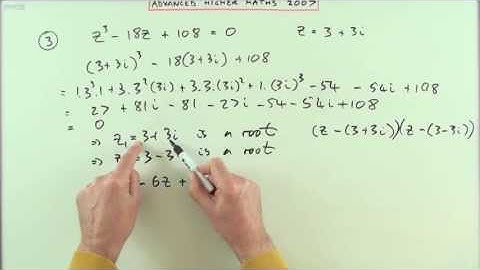 ADVANCED HIGHER MATHS 2007
③ z³ - 18z + 108 = 0 z = 3 + 3i
(3+3i)³ - 18(3+3i) + 108
= 1.3³.1 + 3.3²(3i) + 3.3.(3i)² + 1.(3i)³ - 54 - 54i + 108
= 27 + 81i - 81 - 27i - 54 - 54i + 108
= 0
⇒ z₁ = 3 + 3i is a root (z - (3+3i))(z - (3-3i))
⇒ = 3 - 3 is a root
- 6z +